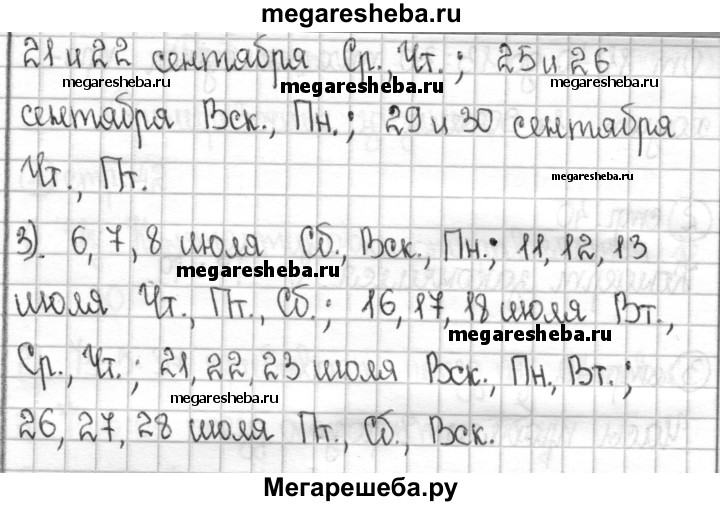 megaresheba.ru
21 и 22 сентября Ср., Чт.; 25 и 26
megaresheba.ru megaresheba.ru megaresheba.ru
сентября Вск., Пн.; 29 и 30 сентября
Чт., Пт.
megaresheba.ru
3). 6, 7, 8 июля Сб., Вск., Пн.; 11, 12, 13
megaresheba.ru
июля Чт., Пт., Сб.; 16, 17, 18 июля Вт.,
megaresheba.ru
Ср., Чт.; 21, 22, 23 июля Вск., Пн., Вт.;
megaresheba.ru
26, 27, 28 июля Пт., Сб., Вск.
Мегарешеба.ру